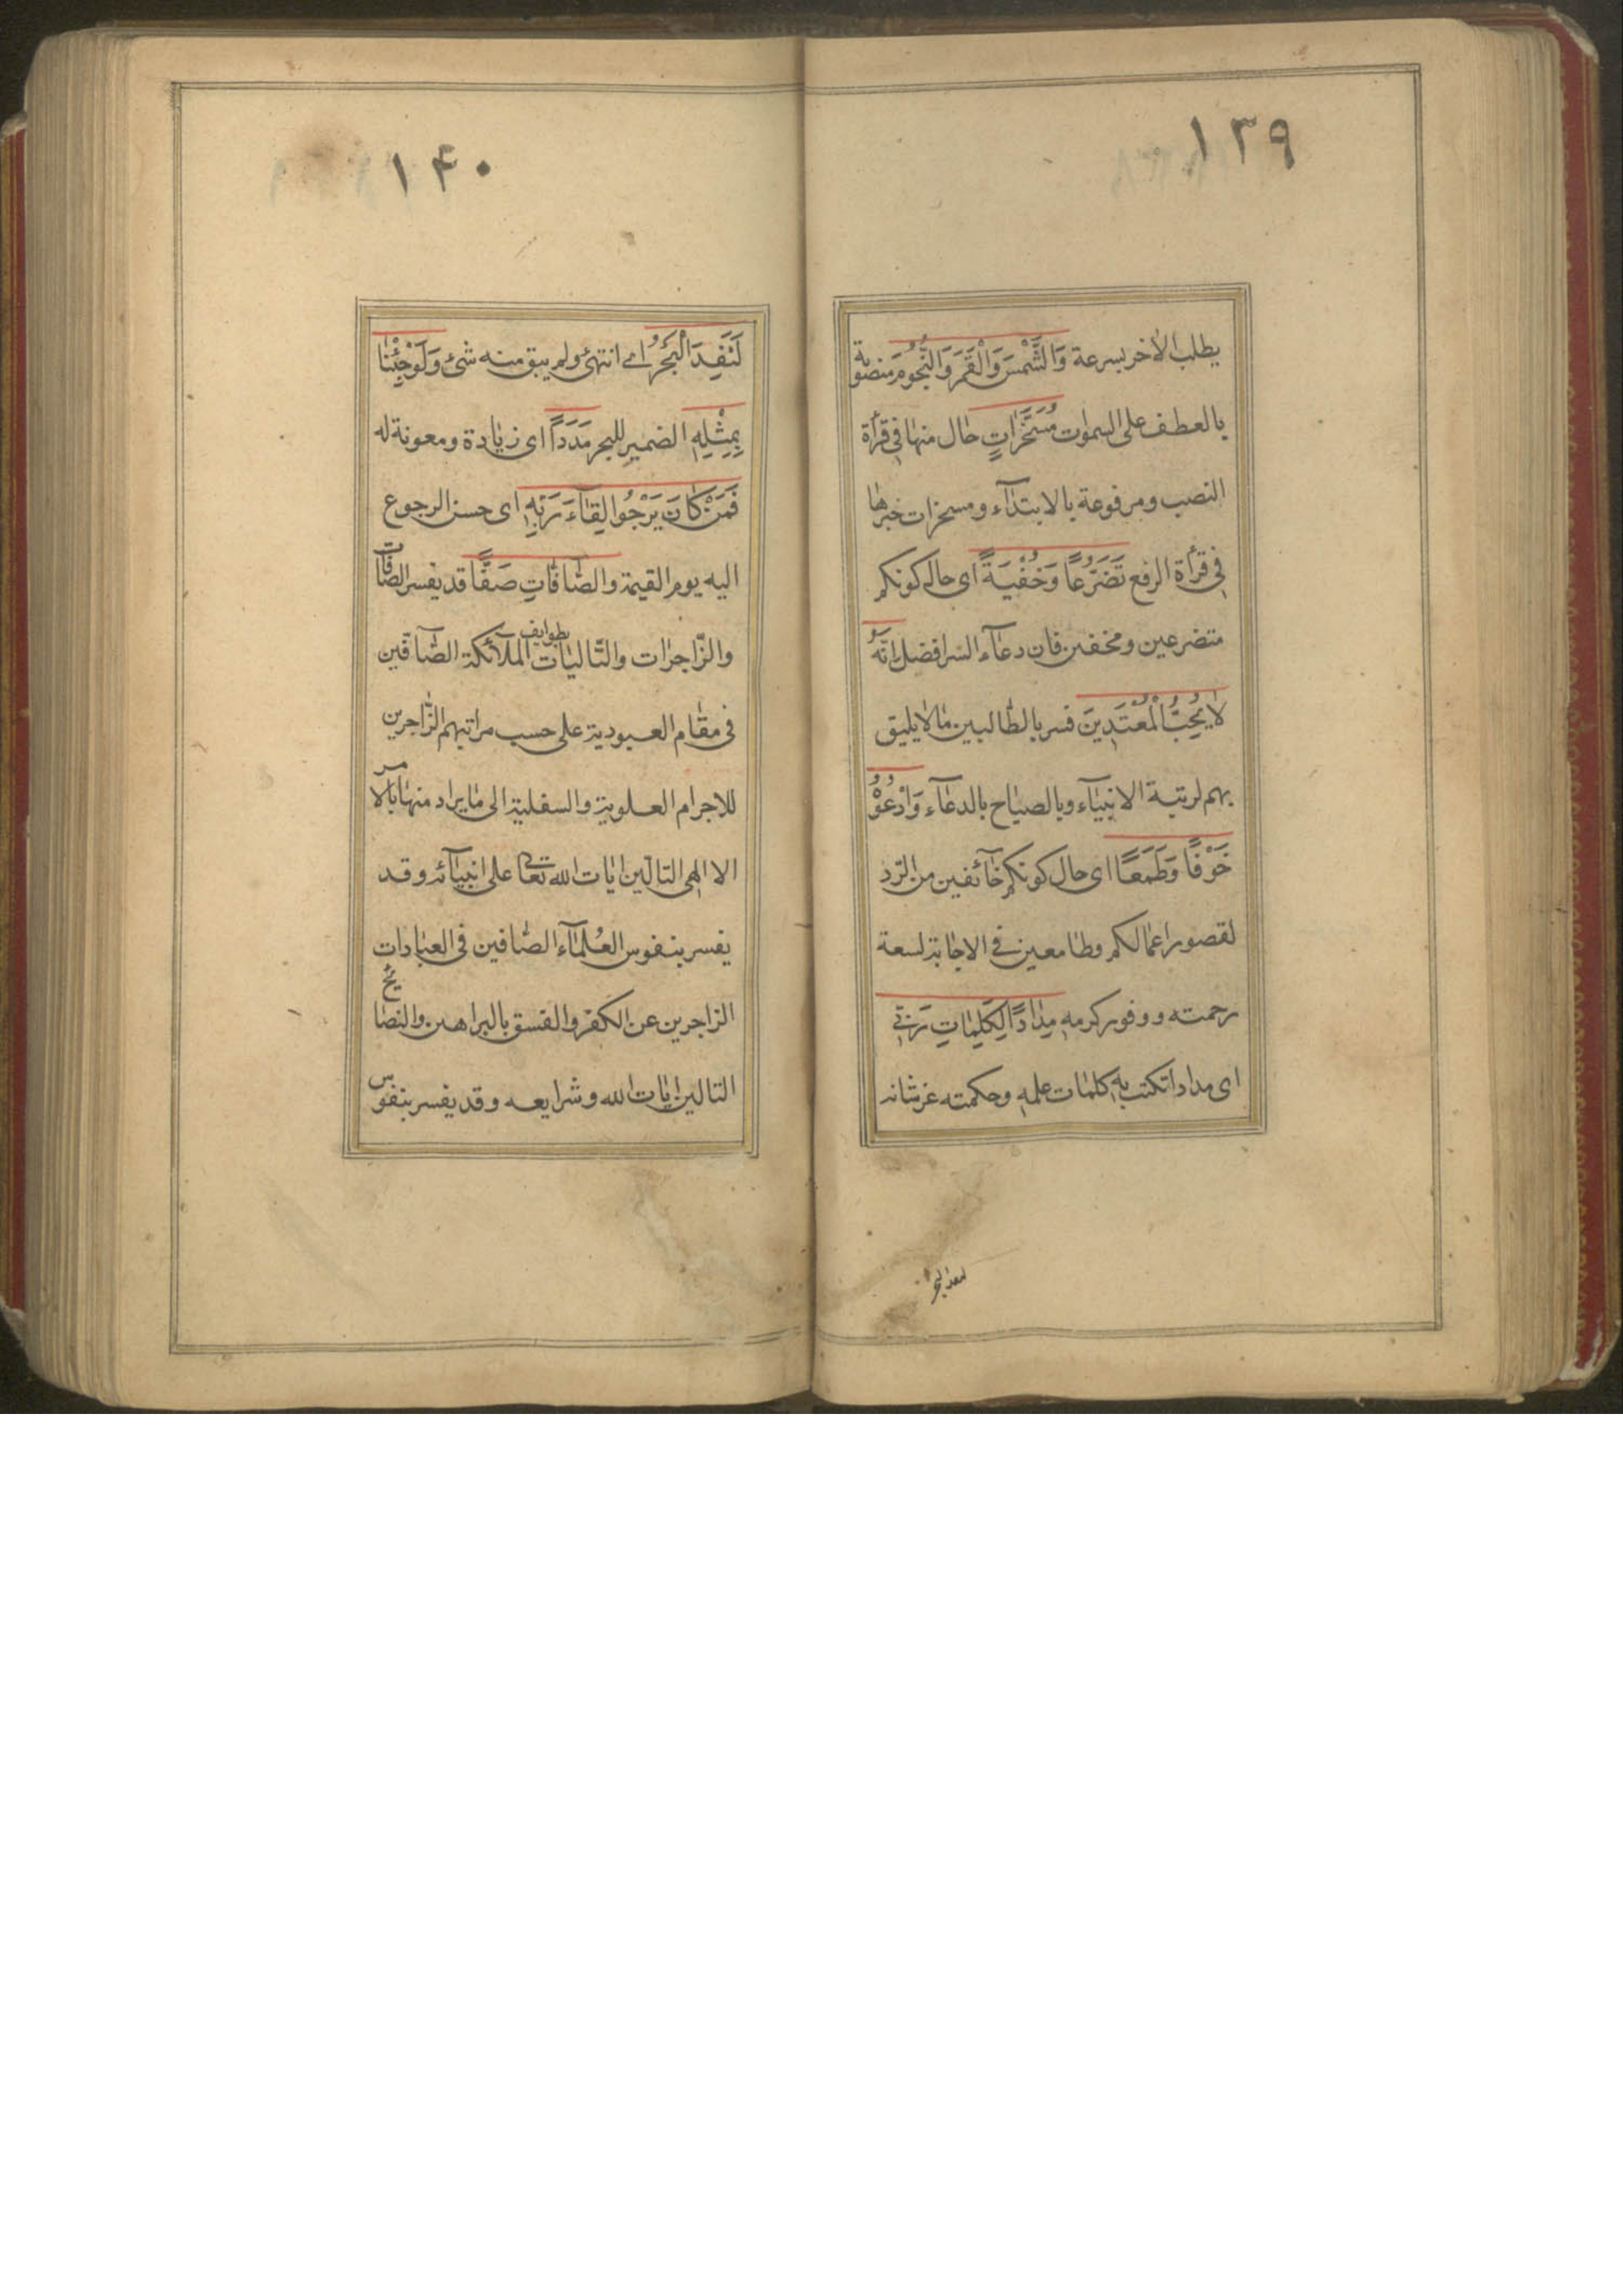 ١٣٩
يطلب الاخر بسرعة وَالشَّمْسَ وَالْقَمَرَ وَالنُّجُومَ منصوبة
بالعطف على السموات مُسَخَّرَاتٍ حال منها في قرأة
النصب ومرفوعة بالابتدآء ومسخرات خبرها
في قرأة الرفع تَضَرُّعًا وَخُفْيَةً اى حال كونكم
متضرعين ومخفين فان دعآء السر افضل اِنَّهُ
لَا يُحِبُّ الْمُعْتَدِينَ فسر بالطالبين ما لا يليق
بهم لرتبة الانبيآء وبالصياح بالدعآء وَادْعُوْهُ
خَوْفًا وَطَمَعًا اى حال كونكم خآئفين من الرّد
لقصور اعمالكم وطامعين في الاجابة لسعة
رحمته ووفور كرمه مِدَادًا لِكَلِمَاتِ رَبّي
اى مدادا تكتب به كلمات علمه وحكمته عز شانه
لنفد البحر
١۴٠
لَنَفِدَ الْبَحْرُ اى انتهى ولم يبق منه شئ وَلَوْ جِئْنَا
بِمِثْلِهِ الضمير للبحر مَدَدًا اى زيادة ومعونة له
فَمَنْ كَانَ يَرْجُوا لِقَآءَ رَبِّهِ اى حسن الرجوع
اليه يوم القيمة والصَّافَّاتِ صَفًّا قد يفسر الصافات
والزّاجرات والتّاليات بطوايف الملآئكة الصّآفّين
في مقام العبودية على حسب مراتبهم الزّاجرين
للاجرام العلوية والسفلية الى ما يراد منها بالامر
الالهى التالين ايات الله تعالى على انبيآئه وقد
يفسر بنفوس العُلمآء الصّافين في العبادات
الزاجرين عن الكفر والفسق بالبراهين والنصايح
التالين ايات الله وشرايعه وقد يفسر بنفوس